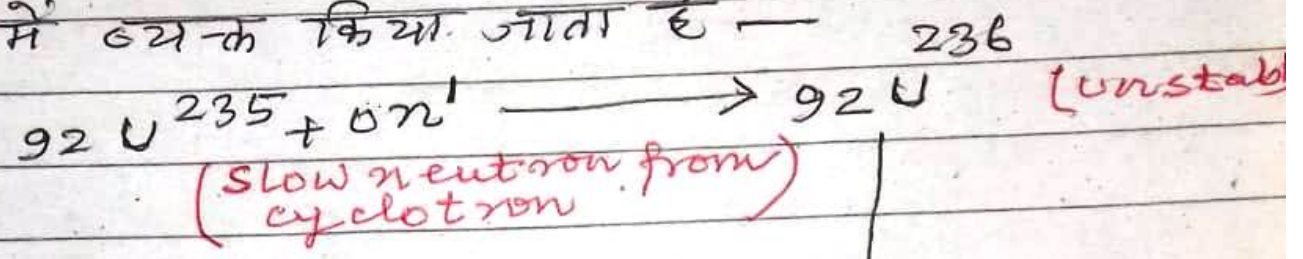 में व्यक्त किया जाता है —
₉₂U²³⁵ + ₀n¹ ⟶ ₉₂U²³⁶ (unstab
(slow neutron from cyclotron)